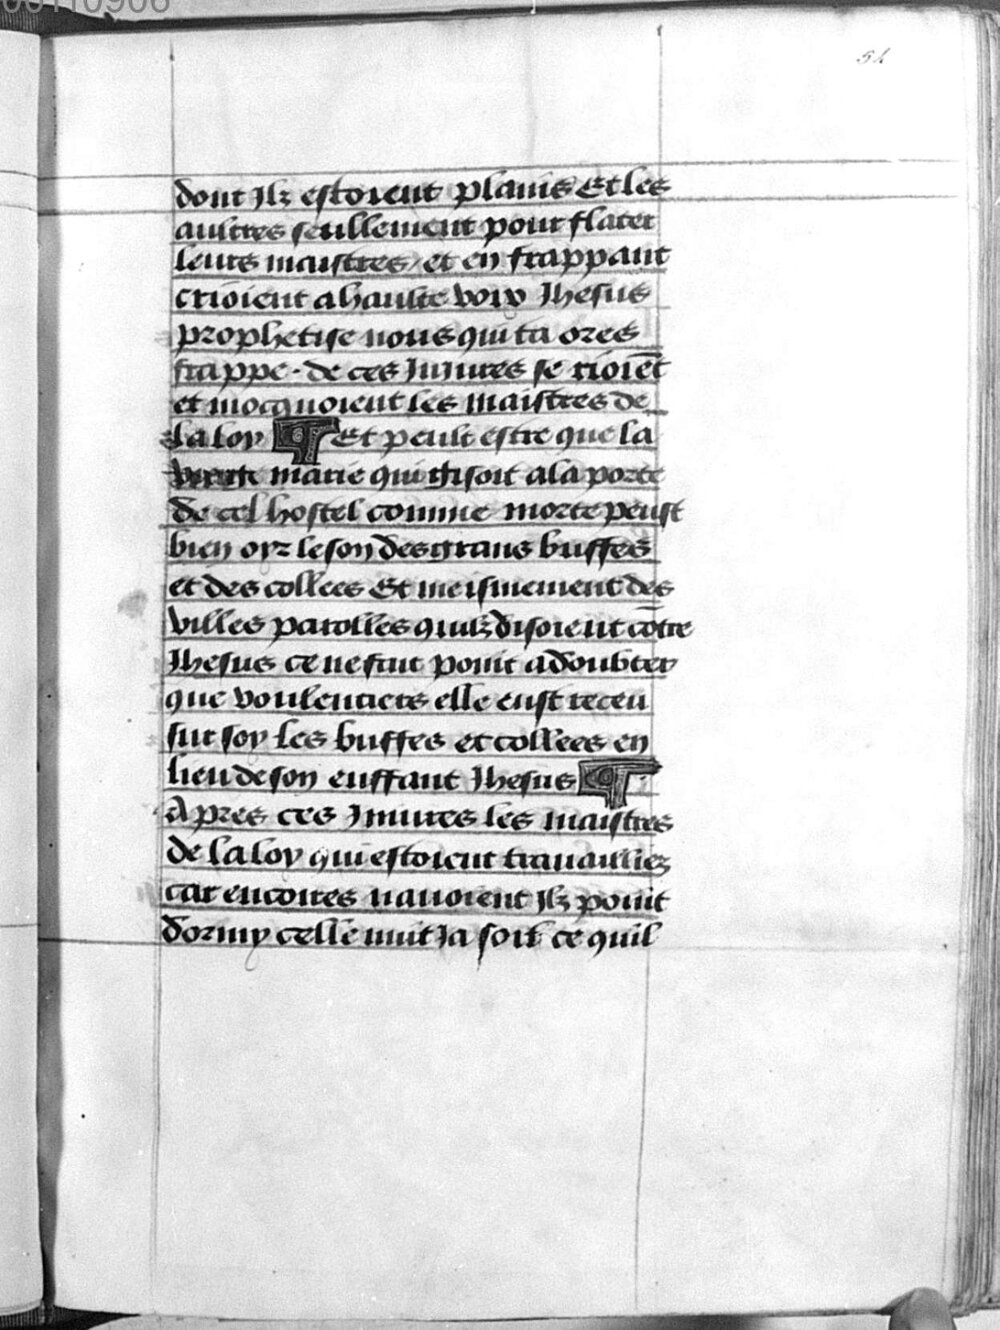 00110906
54
dont Ilz estoient plains Et les
aultres seullement pour flater
leurs maistres / et en frappant
crioient a haulte voix Ihesus
prophetise nous qui ta ores
frappe . de ces Iniures se rioiēt
et mocquoient les maistres de
la loy ¶ Et peult estre que la
vierge marie qui gisoit a la porte
de cel hostel comme morte peust
bien oyr le son des grans buffes
et des collees Et meismement des
villes parolles quilz disoient cōtre
Ihesus ce ne fait point a doubter
que voulentiers elle eust receu
sur soy les buffes et collees en
lieu de son enffant Ihesus ¶
Apres ces Iniures les maistres
de la loy qui estoient trauailliez
car encoires nauoient Ilz point
dormy celle nuit Ja soit ce quil